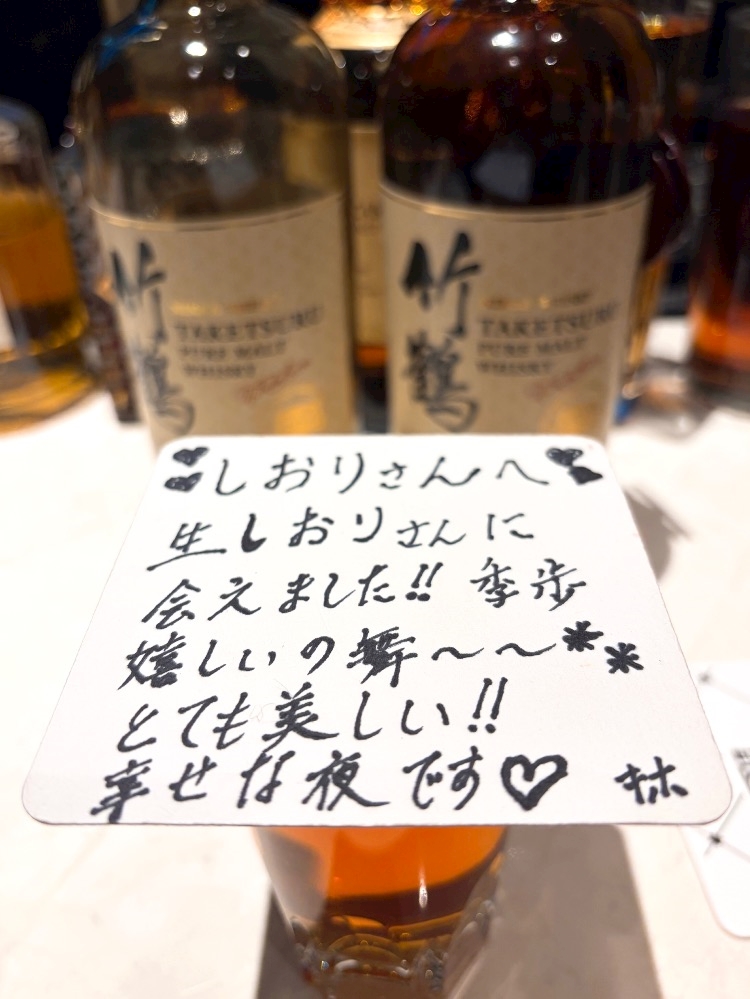 竹鶴
TAKETSURU
PURE MALT
WHISKY
竹鶴
TAKETSURU
PURE MALT
WHISKY
しおりさんへ
生しおりさんに
会えました!! 季歩
嬉しいの舞〜〜**
とても美しい!!
幸せな夜です♡ 林